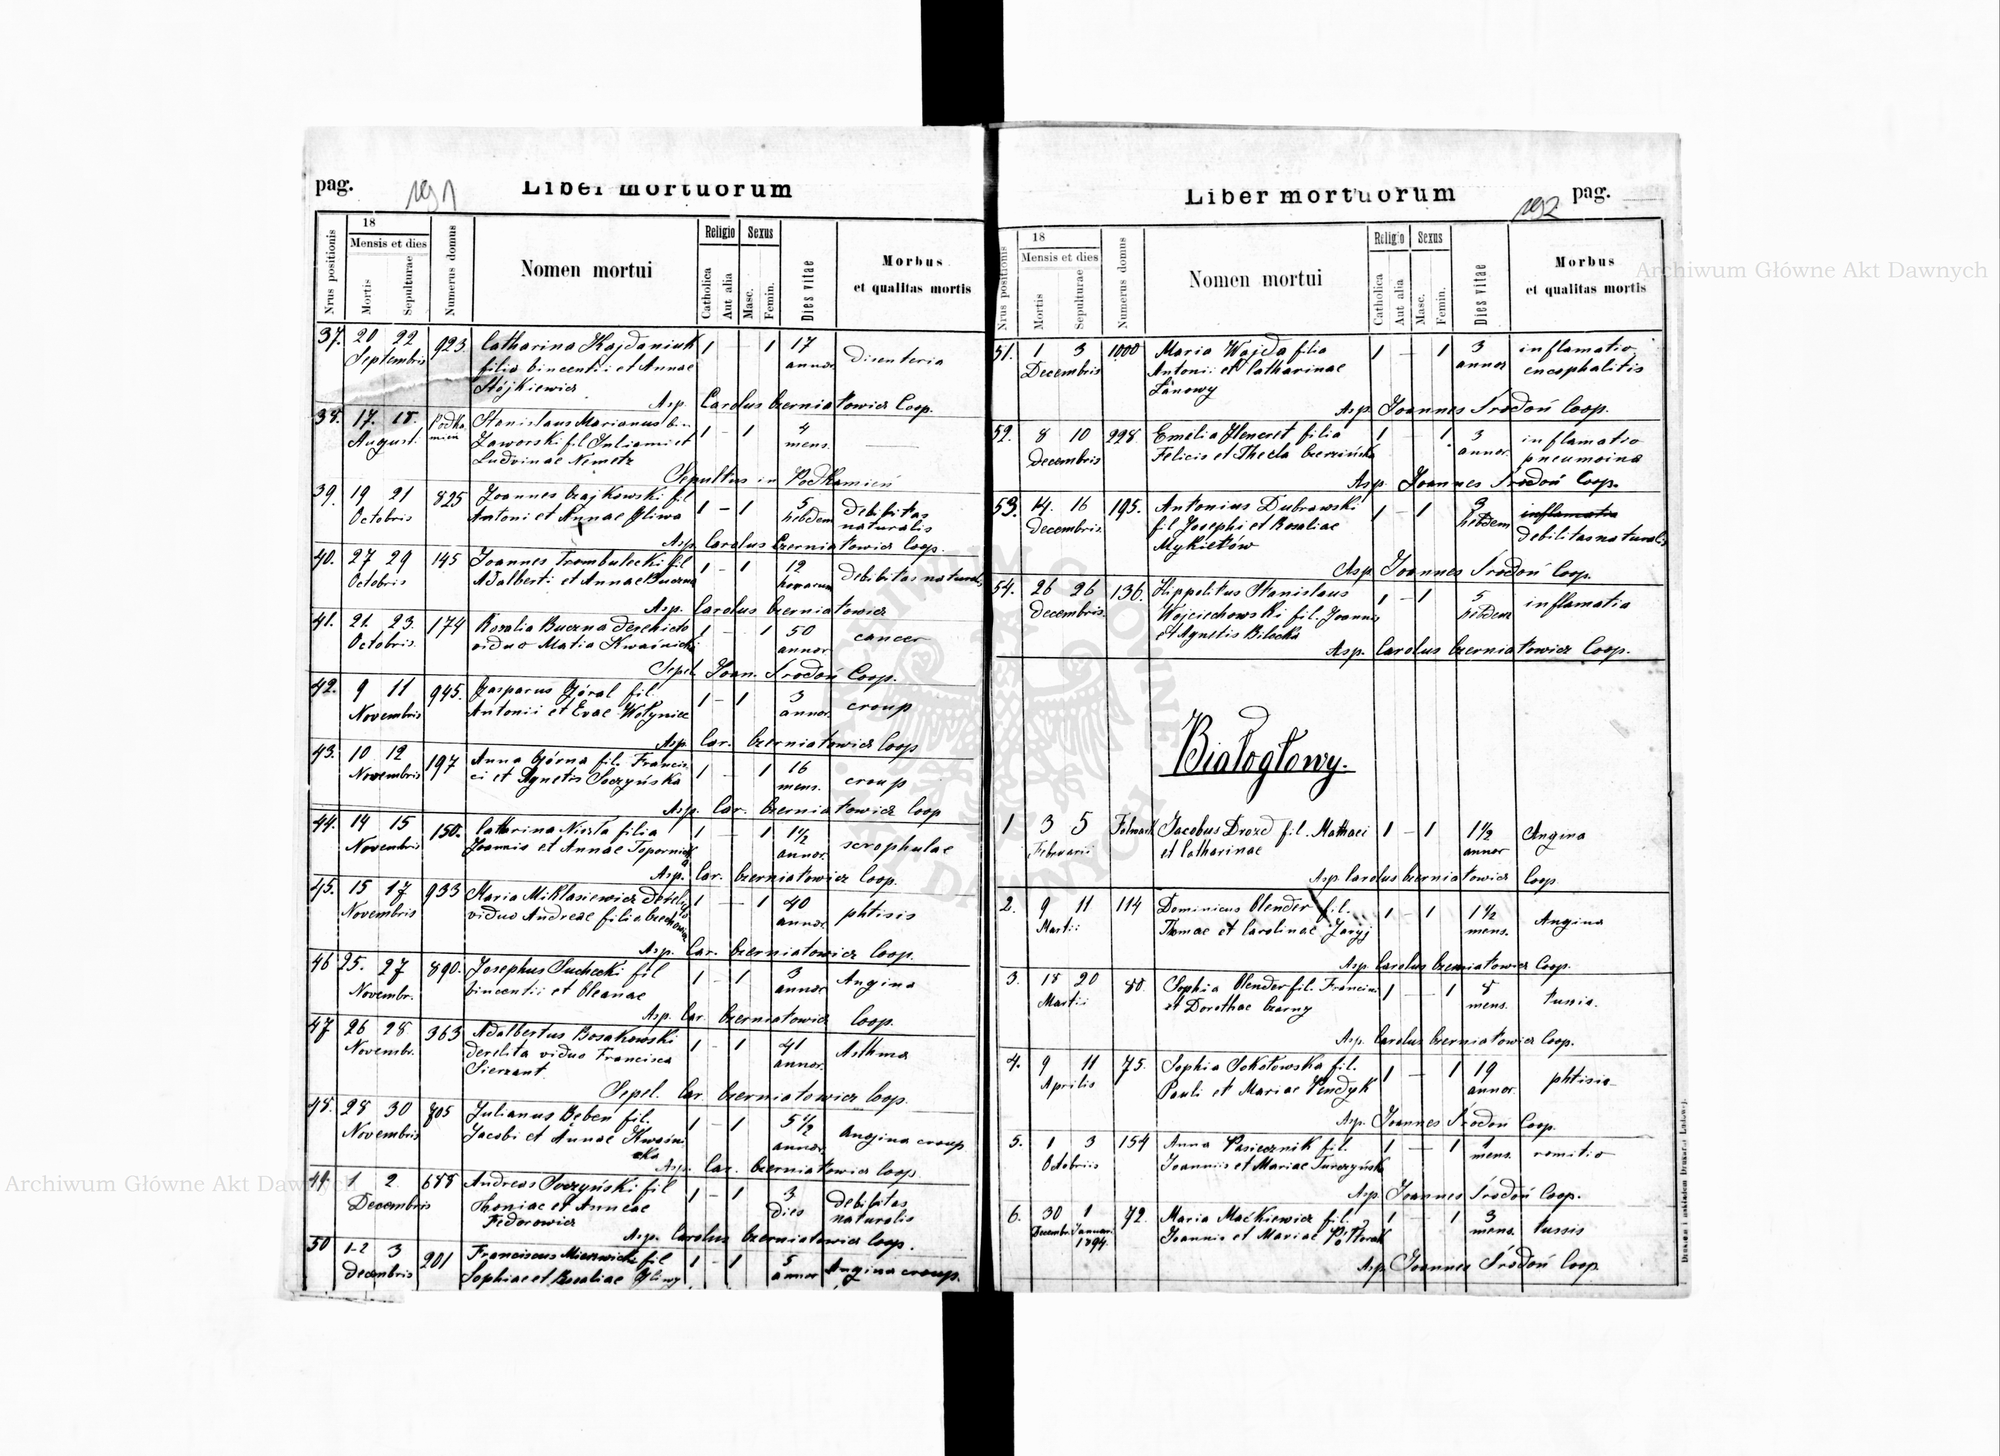 pag. 191 Liber mortuorum
Nrus positionis
18
Mensis et dies
Mortis
Sepulturae
Numerus domus
Nomen mortui
Religio
Catholica
Aut alia
Sexus
Masc.
Femin.
Dies vitae
Morbus
et qualitas mortis
37. 20 22 923. Catharina Kajdaniuk 1 — 1 17
Septembris filia Vincentii et Annae annor disenteria
Stójkiewicz
Asp. Carolus Czerniatowicz Coop.
38. 17. 18. Podka Stanislaus Marianus
August. mień Zaworski fil Juliani et 1 — 1 4 mens. —
Ludvinae Nemetz
Sepultus in Podkamień
39. 19 21 825 Joannes Czajkowski fil 1 — 1 5 debibitas
Octobris Antoni et Annae Gliwa hebdom naturalis
Asp. Carolus Czerniatowicz Coop.
40. 27 29 145 Joannes Trembulecki fil 1 — 1 12 debibitas naturalis
Octobris Adalberti et Annae Buczma horarum
Asp. Carolus Czerniatowicz
41. 21. 23. 174 Rosalia Buczna derelicta 1 — 1 50 cancer
Octobris vidua Matia Kwaśnicki annor
Sepel. Joan. Środoń Coop.
42. 9 11 945. Gasparus Góral fil. 1 — 1 3 croup
Novembris Antonii et Evae Wołyniec annor.
Asp. Car. Czerniatowicz Coop
43. 10 12 197 Anna Górna fil. Francis 1 — 1 16 croup
Novembris ci et Agnetis Soczyńska mens.
Asp. Car. Czerniatowicz Coop
44. 14 15 150. Catharina Niezła filia 1 — 1 1½ scrophulae
Novembris Joannis et Annae Topornick annor.
Asp. Car. Czerniatowicz Coop.
45. 15 17 933 Maria Miklasiewicz 1 — 1 40 phtisis
Novembris vidua Andreae filia annor.
Asp. Car. Czerniatowicz Coop.
46 25. 27 890. Josephus Suchecki fil 1 — 1 3 Angina
Novembr. Vincentii et Oleanae annor
Asp. Car. Czerniatowicz Coop.
47 26 28 363 Adalbertus Bosakowski 1 — 1 41 Asthma
Novembr. derelita vidua Francisca annor.
Sierzant
Sepel. Car. Czerniatowicz Coop.
48. 28 30 805 Julianus Beben fil. 1 — 1 5½ Angina croup
Novembris Jacobi et Annae Kwaśni annor.
cka
Asp. Car. Czerniatowicz Coop.
49. 1 2. 688 Andreas Soczyński fil 1 — 1 3 debibitas
Decembris Thomae et Anneae dies naturalis
Fedorowicz
Asp. Carolus Czerniatowicz Coop.
50 1-2 3 201 Franciscus Mierzwicki fil 1 — 1 5 Angina croup.
Decembris Sophiae et Rosaliae Gliwy annor
Liber mortuorum 192 pag.
Nrus positionis
18
Mensis et dies
Mortis
Sepulturae
Numerus domus
Nomen mortui
Religio
Catholica
Aut alia
Sexus
Masc.
Femin.
Dies vitae
Morbus
et qualitas mortis
51. 1 3 1000 Maria Wajda filia 1 — 1 3 inflamatio
Decembris Antonii et Catharinae annor encephalitis
Łanowy
Asp. Joannes Środoń Coop.
52. 8 10 228. Emilia Heneret filia 1 — 1 3 inflamatio
Decembris Felicis et Thecla annor. pneumoina
Asp. Joannes Środoń Coop.
53. 14. 16 195. Antonius Dubrawski 1 — 1 3 inflamatio
Decembris. fil Josephi et Rosaliae hebdem debilitas naturalis
Mykietów
Asp Joannes Środoń Coop.
54. 26 26 136. Hippolitus Stanislaus 1 — 1 5 inflamatia
Decembris. Wojciechowski fil. Joannis hebdem
et Agnetis Bilecka
Asp. Carolus Czerniatowicz Coop.
Białogłowy.
1 3 5 Folwark Jacobus Drozd fil. Mathaei 1 — 1 1½ Angina
Februarii et Catharinae annor
Asp. Carolus Czerniatowicz Coop.
2. 9 11 114 Dominicus Olender fil. 1 — 1 1½ Angina
Martii Thomae et Carolinae Jaryj mens.
Asp. Carolus Czerniatowicz Coop.
3. 18 20 80. Sophia Olender fil. Francisci 1 — 1 8 tussis.
Martii et Dorothae Czarny mens.
Asp. Carolus Czerniatowicz Coop.
4. 9 11 75. Sophia Sokołowska fil. 1 — 1 19 phtisis
Aprilis Pauli et Mariae Pendyk annor.
Asp. Joannes Środoń Coop.
5. 1 3 154 Anna Pasiecznik fil. 1 — 1 1 vomitio
Octobriis Joannis et Mariae Turczyńsk mens.
Asp. Joannes Środoń Coop.
6. 30 1 72. Maria Maćkiewicz fil. 1 — 1 3 tussis
Decembr. Januari Joannis et Mariae Półtorak mens.
1894.
Asp Joannes Środoń Coop
Drukiem i nakładem Drukarni Ludowej.
Archiwum Główne Akt Dawnych
Archiwum Główne Akt Dawnych
ARCHIWUM GŁÓWNE AKT DAWNYCH